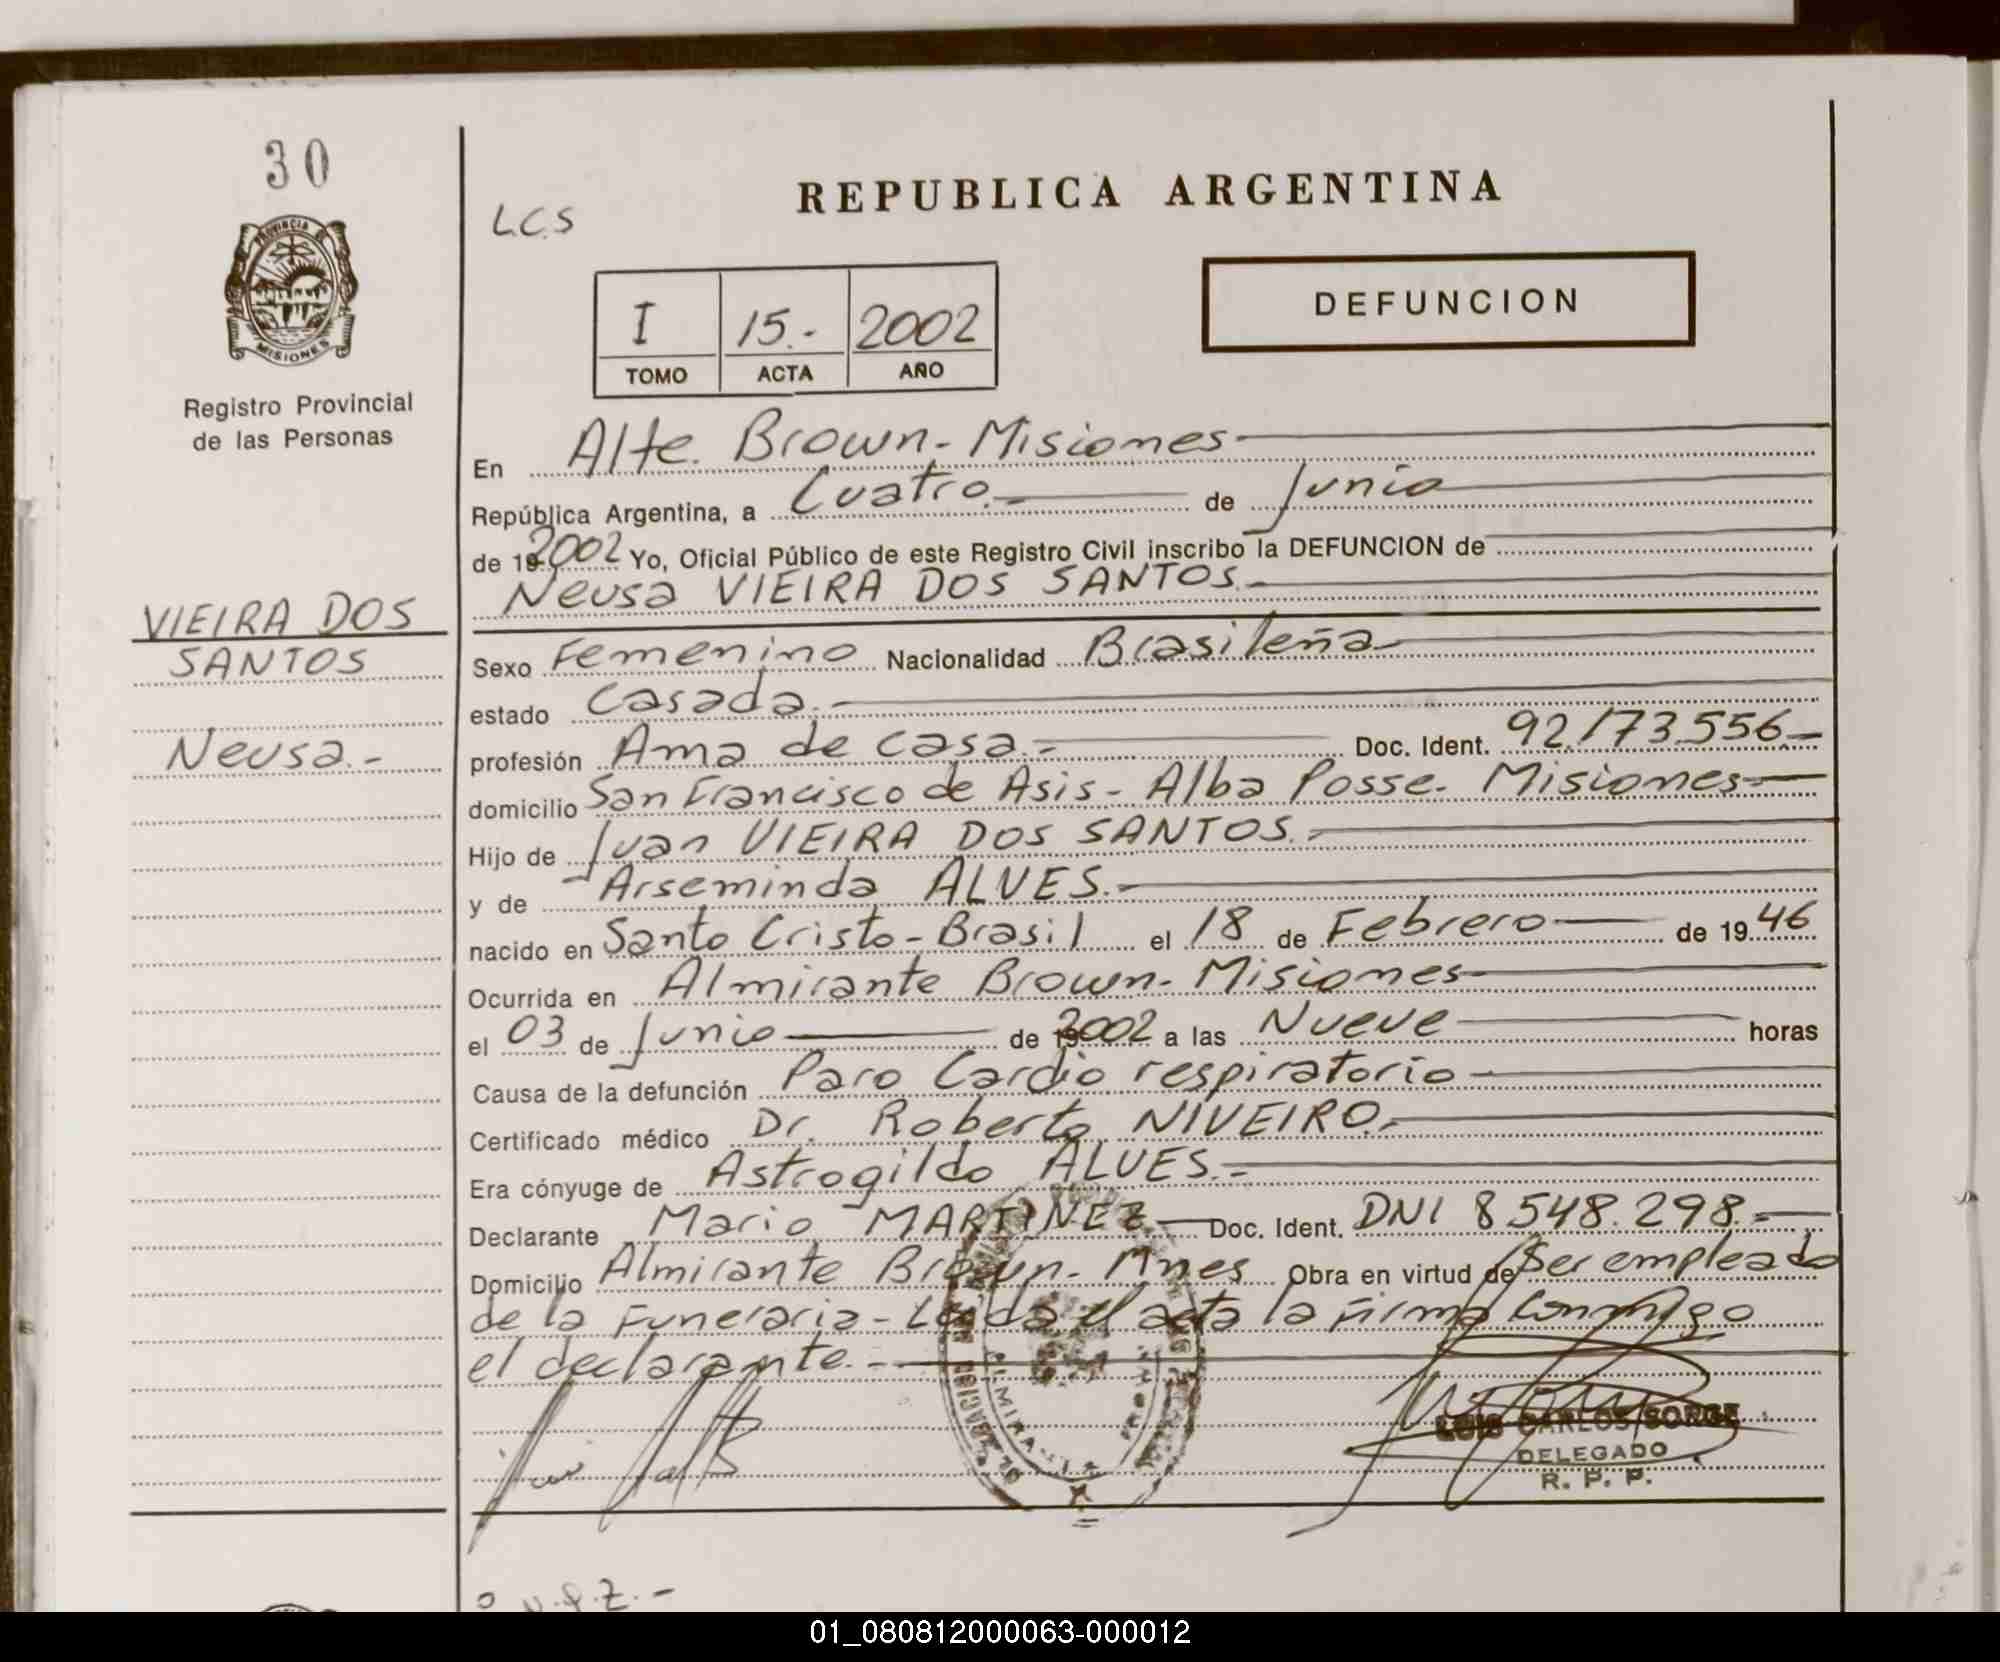 30
PROVINCIA DE
MISIONES
Registro Provincial
de las Personas
VIEIRA DOS
SANTOS
Neusa.-
L.C.S
REPUBLICA ARGENTINA
DEFUNCION
I 15.- 2002
TOMO ACTA AÑO
En Alte. Brown - Misiones
República Argentina, a Cuatro.- de Junio
de 19 2002 Yo, Oficial Público de este Registro Civil inscribo la DEFUNCION de
Neusa VIEIRA DOS SANTOS.-
Sexo Femenino Nacionalidad Brasileña
estado Casada.-
profesión Ama de casa.- Doc. Ident. 92173.556
domicilio San Francisco de Asis - Alba Posse - Misiones
Hijo de Juan VIEIRA DOS SANTOS.-
y de Arseminda ALVES.-
nacido en Santo Cristo - Brasil el 18 de Febrero de 19 46
Ocurrida en Almirante Brown - Misiones
el 03 de Junio de 19 2002 a las Nueve horas
Causa de la defunción Paro Cardio respiratorio
Certificado médico Dr. Roberto NIVEIRO.-
Era cónyuge de Astrogildo ALVES.-
Declarante Mario MARTINEZ Doc. Ident. DNI 8548.298.-
Domicilio Almirante Brown - Mnes Obra en virtud de Ser empleado
de la Funeraria - Leída el acta la firma conmigo
el declarante.-
LUIS CARLOS SORGE
DELEGADO
R. P. P.
01_080812000063-000012